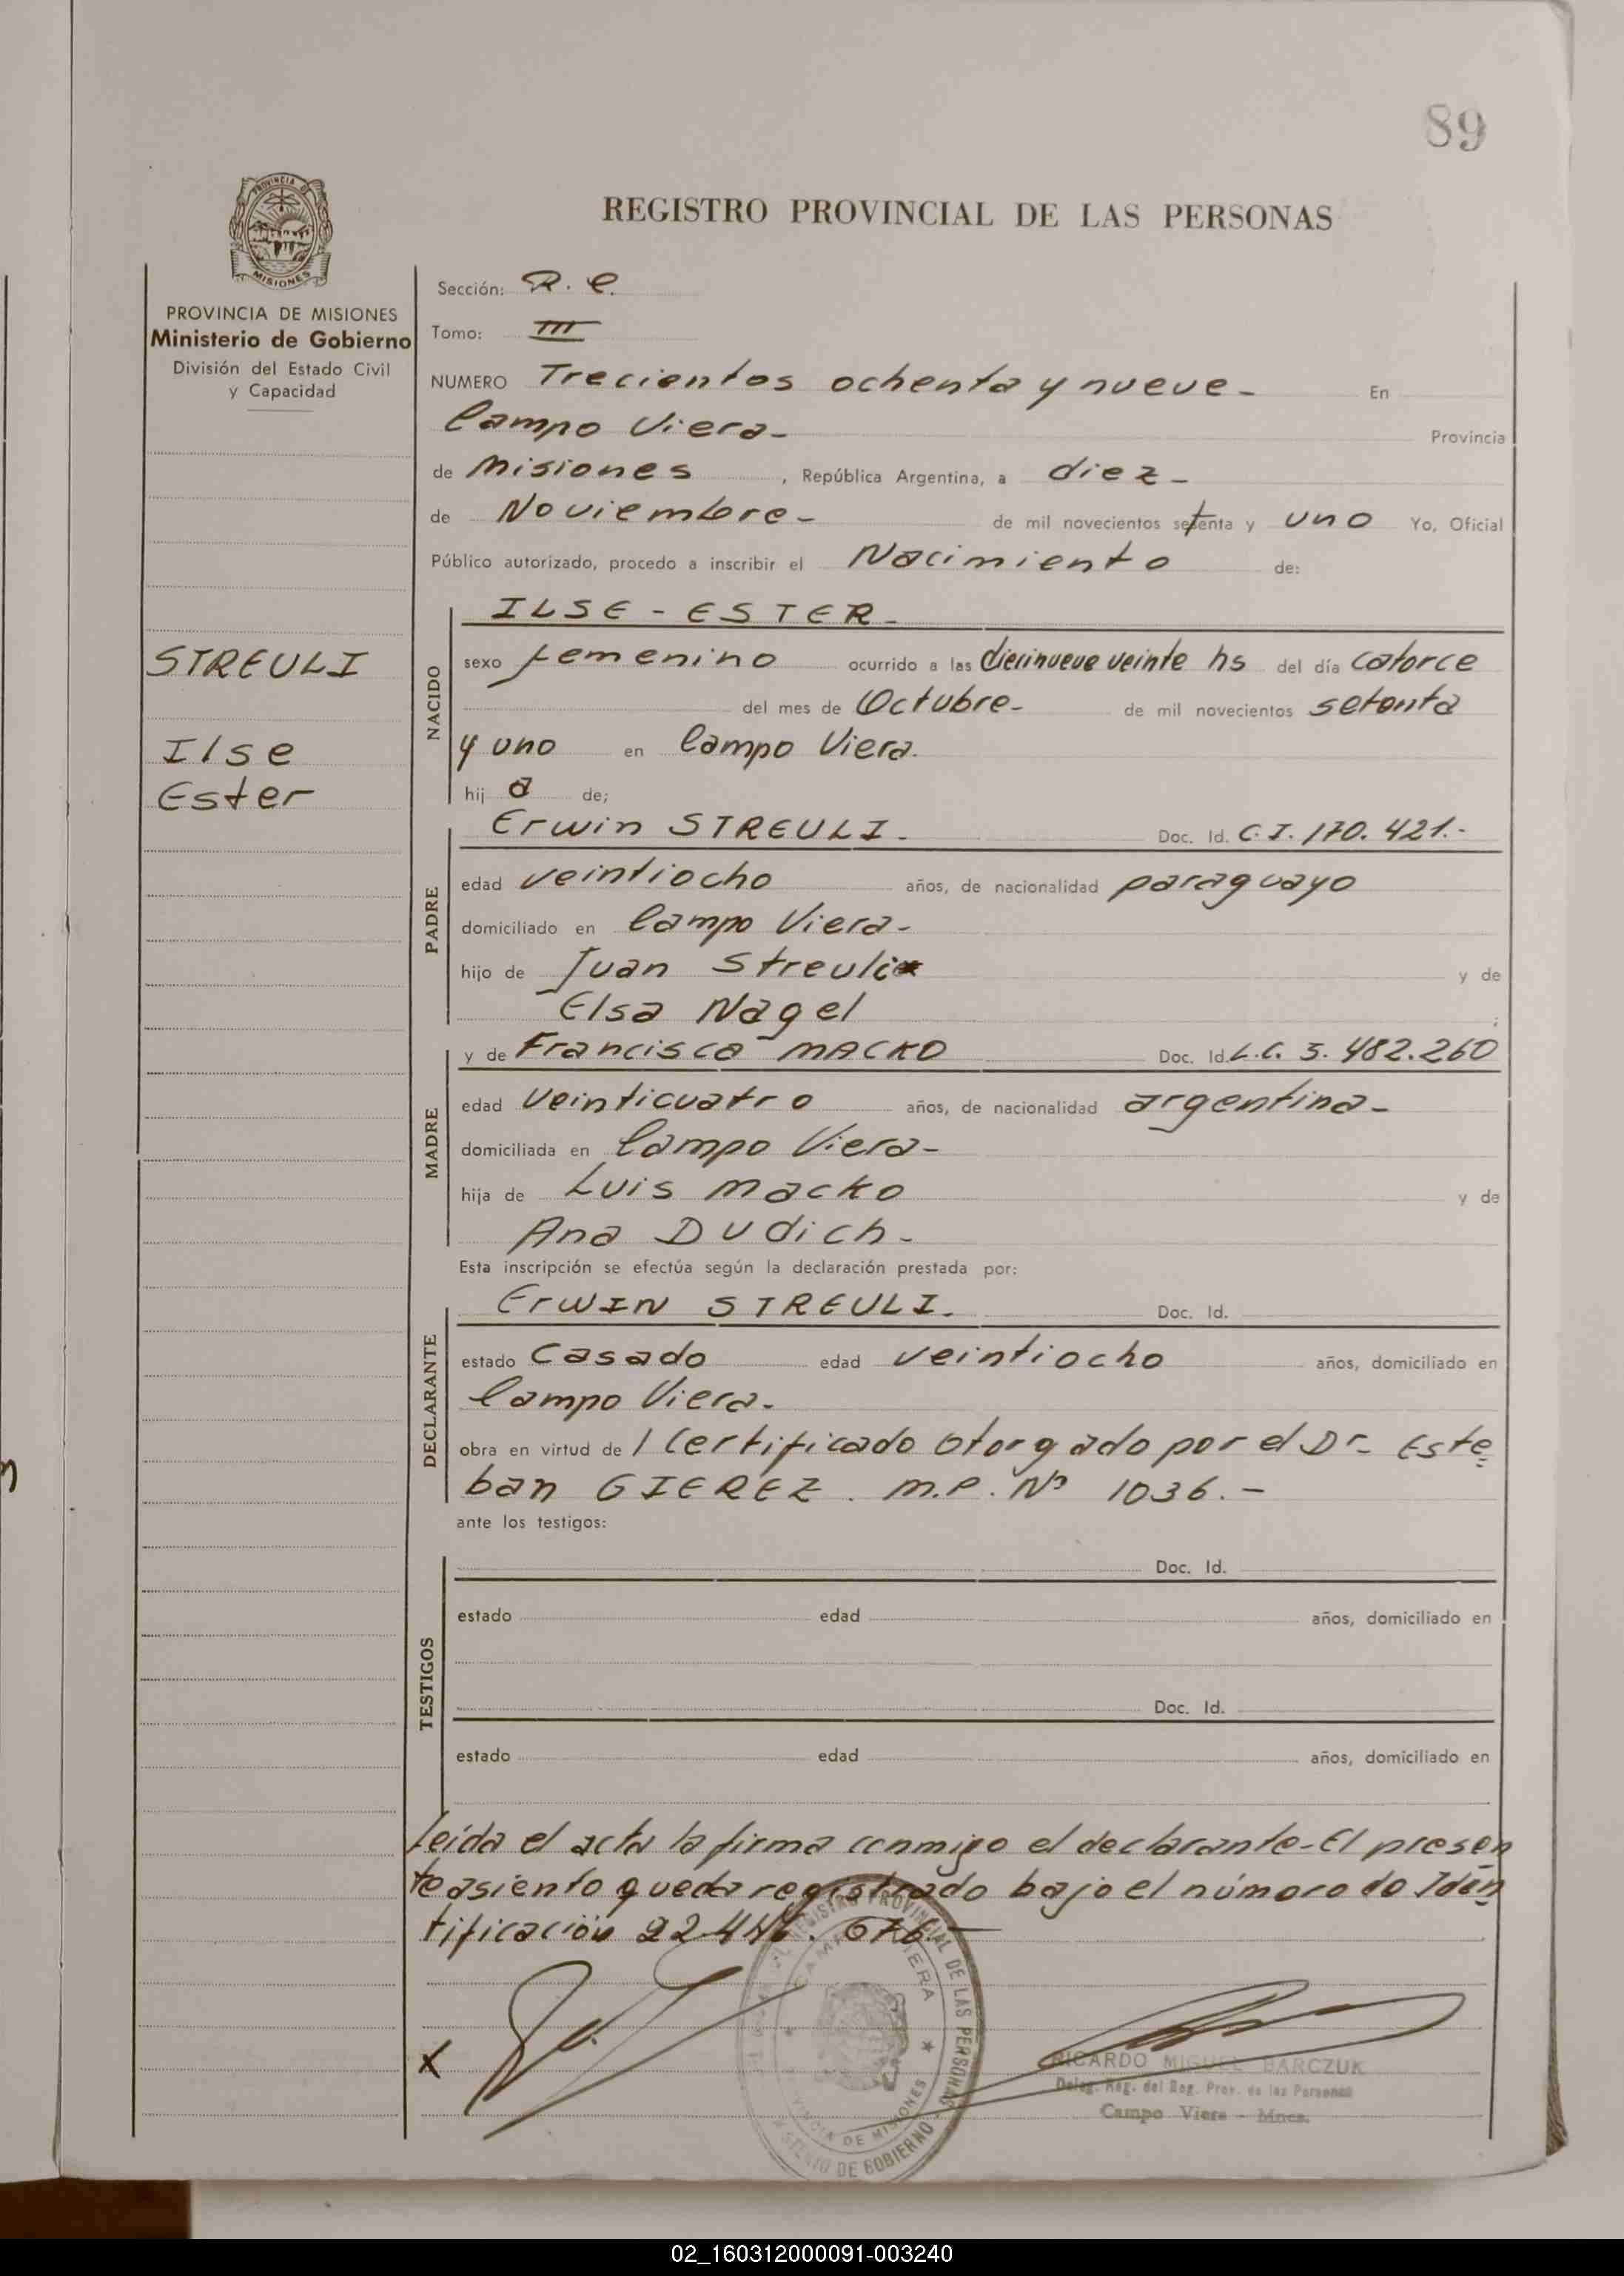 89
REGISTRO PROVINCIAL DE LAS PERSONAS
PROVINCIA DE
MISIONES
PROVINCIA DE MISIONES
Ministerio de Gobierno
División del Estado Civil
y Capacidad
STREULI
Ilse
Ester
Sección: R. C.
Tomo: III
NUMERO Trecientos ochenta y nueve- En
Campo Viera- Provincia
de Misiones , República Argentina, a diez-
de Noviembre- de mil novecientos setenta y uno Yo, Oficial
Público autorizado, procedo a inscribir el Nacimiento de:
NACIDO
ILSE - ESTER-
sexo femenino ocurrido a las diecinueve veinte hs del día catorce
del mes de Octubre- de mil novecientos setenta
y uno en Campo Viera.
hij a de;
PADRE
Erwin STREULI- Doc. Id. C.I. 170.421.-
edad veintiocho años, de nacionalidad paraguayo
domiciliado en Campo Viera-
hijo de Juan Streuli y de
Elsa Nagel ;
MADRE
y de Francisca MACKO Doc. Id. L.C. 5.482.260
edad veinticuatro años, de nacionalidad argentina-
domiciliada en Campo Viera-
hija de Luis Macko y de
Ana Dudich-
Esta inscripción se efectúa según la declaración prestada por:
DECLARANTE
ErWIN STREULI. Doc. Id.
estado Casado edad veintiocho años, domiciliado en
Campo Viera-
obra en virtud de 1 Certificado otorgado por el Dr- Este
ban GIEREZ. M.P. Nº 1036.-
ante los testigos:
TESTIGOS
Doc. Id.
estado edad años, domiciliado en
Doc. Id.
estado edad años, domiciliado en
Leída el acta la firma conmigo el declarante-El presen
te asiento queda registrado bajo el número de Iden
tificación 676.-
X
REGISTRO PROVINCIAL DE LAS PERSONAS
CAMPO VIERA
PROVINCIA DE MISIONES
MINISTERIO DE GOBIERNO
RICARDO MIGUEL BARCZUK
Deleg. Reg. del Reg. Prov. de las Personas
Campo Viera - Mnes.
02_160312000091-003240